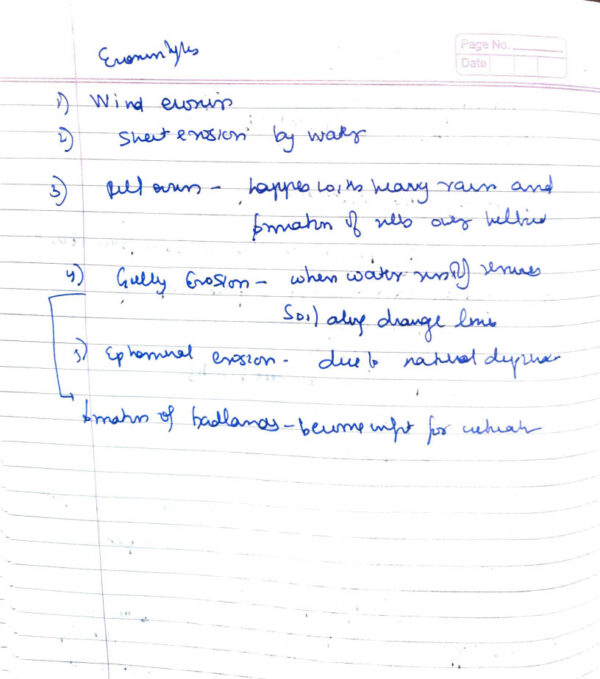 Page No.
Date
Erosion types
1) Wind erosion
2) Sheet erosion by water
3) Rill erosion - happens with heavy rain and
formation of rills over
4) Gully Erosion - when water runoff removes
Soil along drainage lines
5) Ephemeral erosion - due to natural
formation of badlands - become unfit for